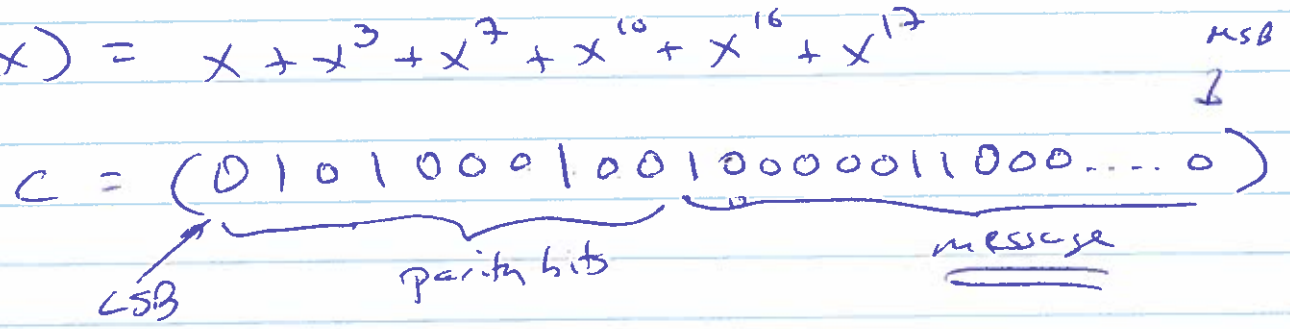 x) = x + x³ + x⁷ + x¹⁰ + x¹⁶ + x¹⁷
MSB
c = (010100010010000011000....0)
parity bits
message
LSB